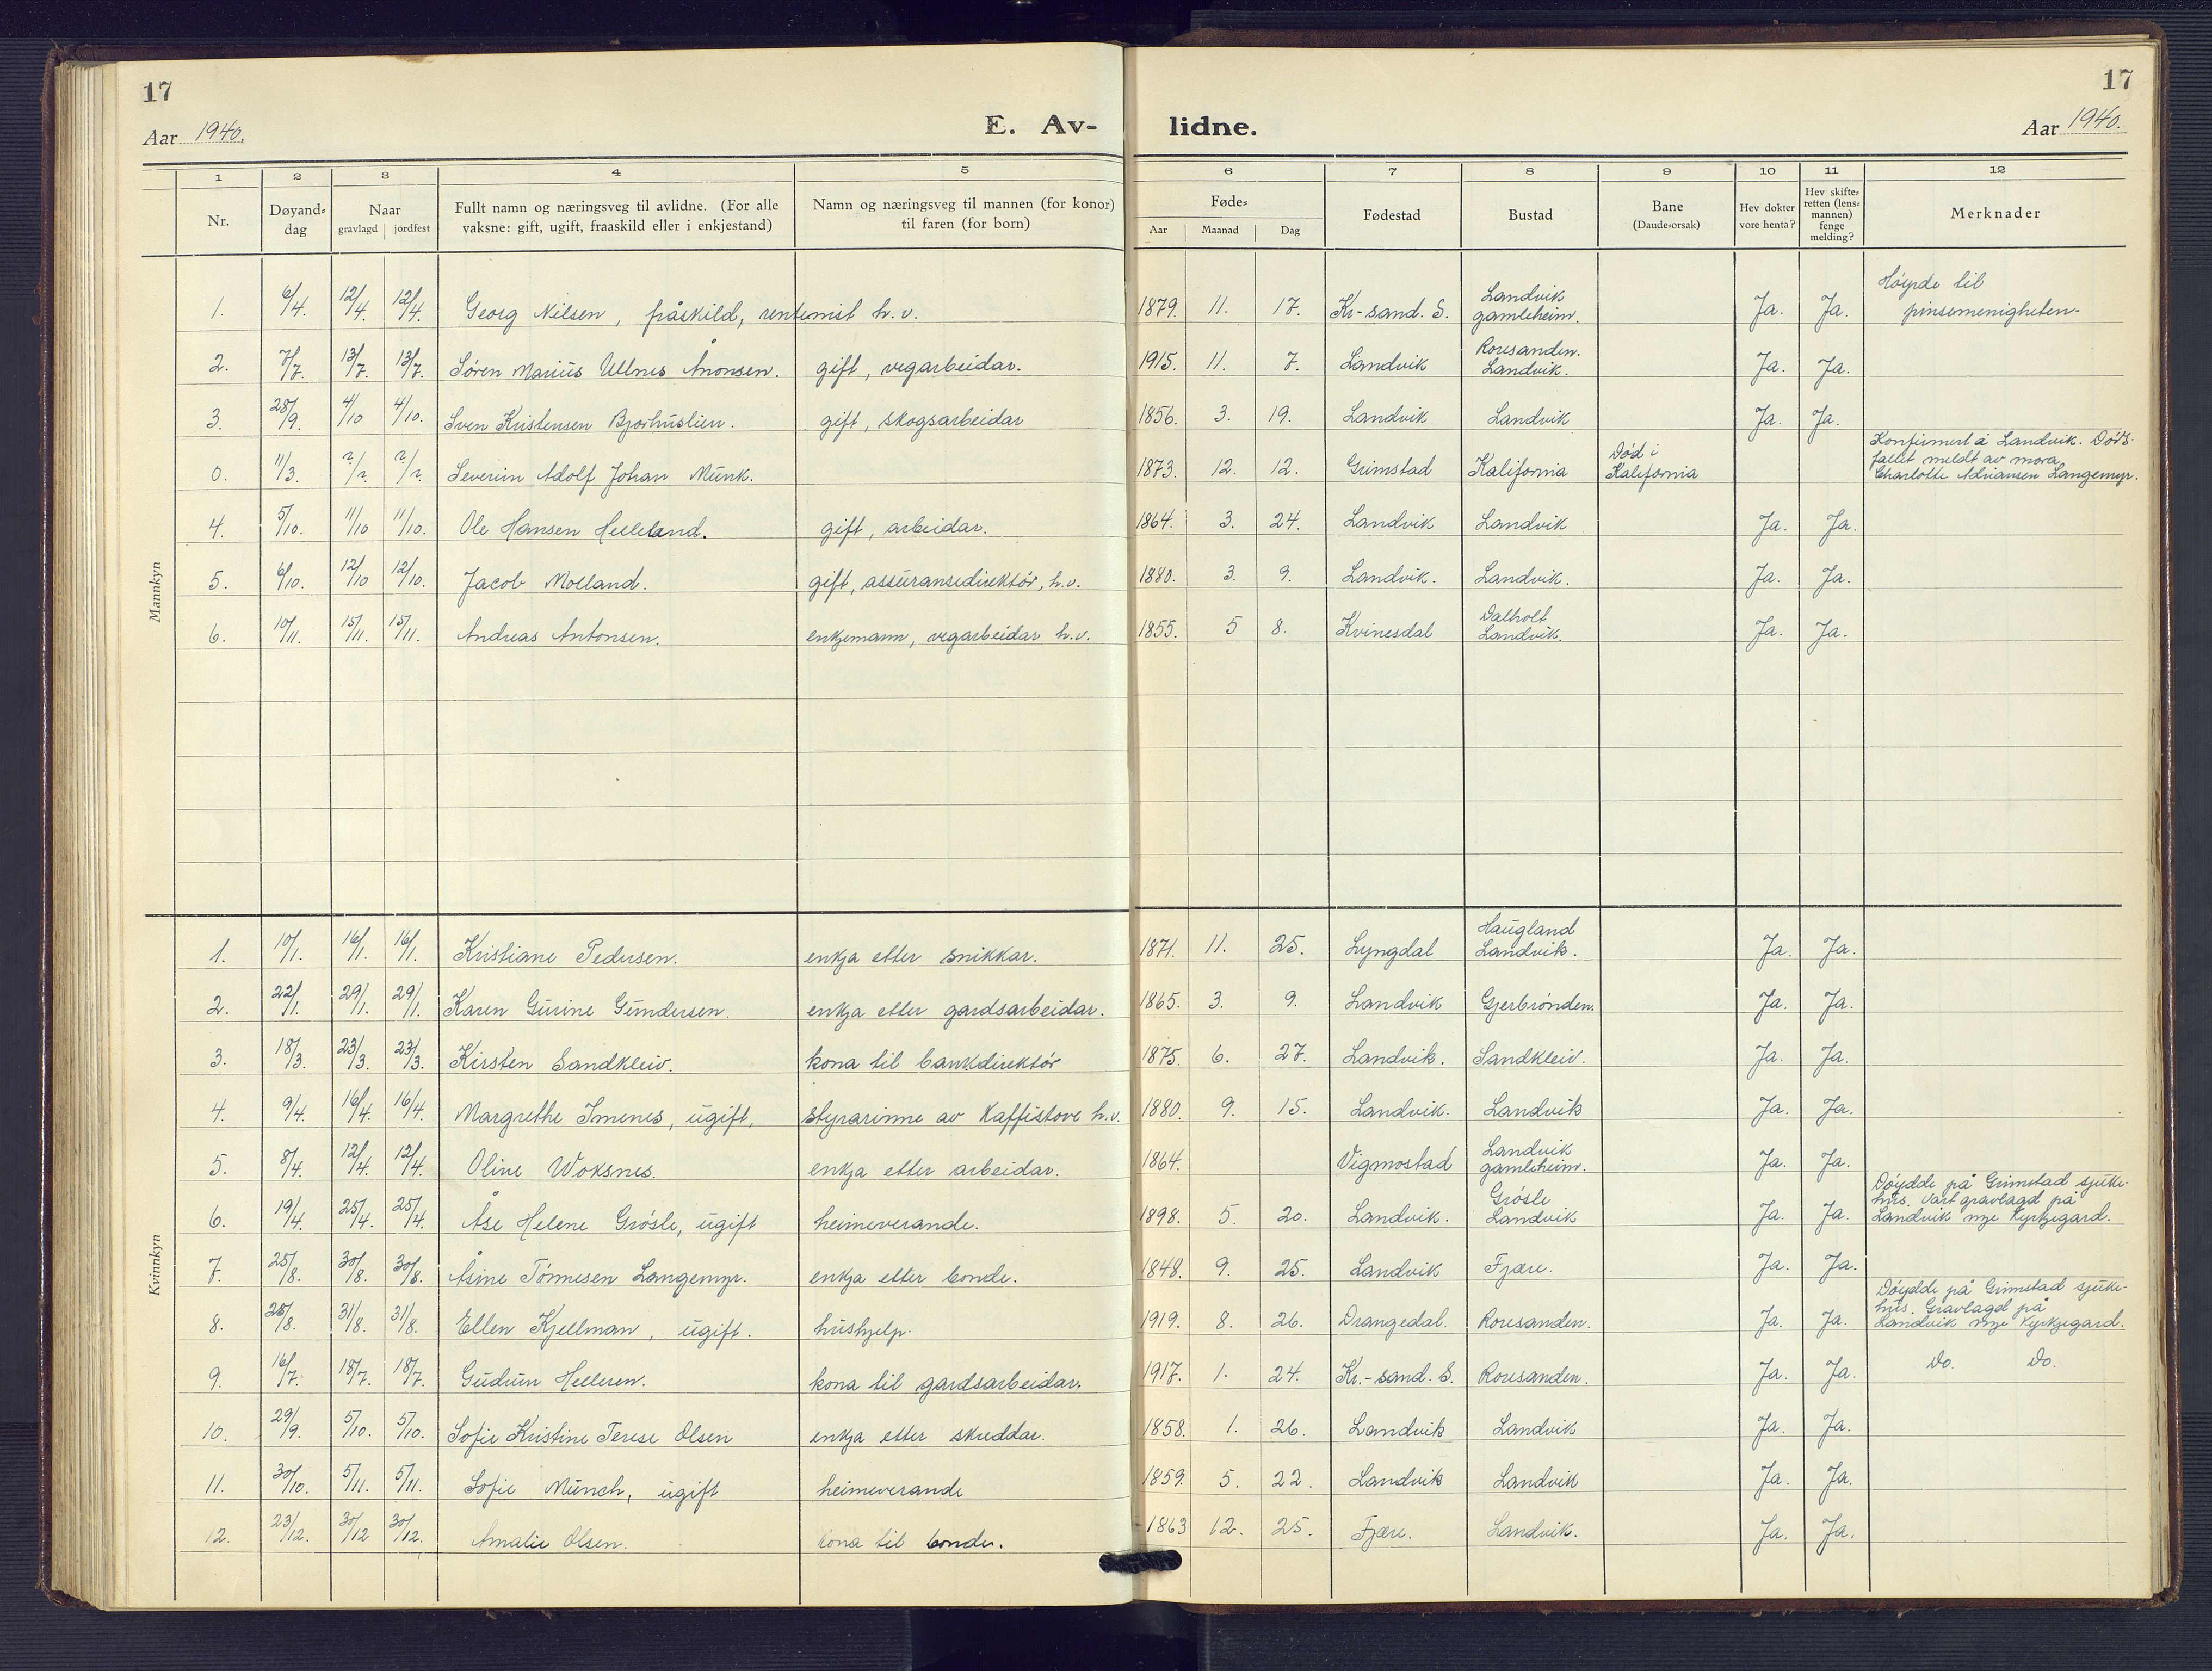 17
17
Aar 1940.
E. Av-
lidne.
Aar 1940.
1 2 3 4 5 6 7 8 9 10 11 12
Nr.
Døyand-dag
Naar gravlagd jordfest
Fullt namn og næringsveg til avlidne. (For alle vaksne: gift, ugift, fraaskild eller i enkjestand)
Namn og næringsveg til mannen (for konor) til faren (for born)
Føde- Aar Maanad Dag
Fødestad
Bustad
Bane (Daude-orsak)
Hev dokter vore henta?
Hev skifte-retten (lens-mannen) fenge melding?
Merknader
Mannkyn
1. 6/4. 12/4. 12/4. Georg Nilsen, fråskild, rentenist h.v. 1879. 11. 17. Kr-sand. S. Landvik gamleheim. Ja. Ja. Høyrde til pinsemenigheten.
2. 7/7. 13/7. 13/7. Søren Marius Ullnes Ånonsen. gift, vegarbeidar. 1915. 11. 7. Landvik Roresanden. Landvik. Ja. Ja.
3. 28/9. 4/10 4/10. Sven Kristensen Bjorhuslien. gift, skogsarbeidar 1856. 3. 19. Landvik Landvik Ja. Ja.
0. 11/3. ?/?. ?/?. Severin Adolf Johan Munk. 1873. 12. 12. Grimstad Kalifornia Død i Kalifornia Konfirmert i Landvik. Døds-fallet meldt av mora, Charlotte Adriansen Langemyr.
4. 5/10. 11/10 11/10. Ole Hansen Helleland. gift, arbeidar. 1864. 3. 24. Landvik Landvik Ja. Ja.
5. 6/10. 12/10 12/10. Jacob Molland. gift, assuransedirektør, h.v. 1880. 3. 9. Landvik. Landvik. Ja. Ja.
6. 10/11. 15/11. 15/11. Andreas Antonsen. enkjemann, vegarbeidar h.v. 1855. 5 8. Kvinesdal Dalholt Landvik. Ja. Ja.
Kvinnkyn
1. 10/1. 16/1. 16/1. Kristiane Pedersen. enkja etter snikkar. 1871. 11. 25. Lyngdal Haugland Landvik. Ja. Ja.
2. 22/1. 29/1. 29/1. Karen Gurine Gundersen. enkja etter gardsarbeidar. 1865. 3. 9. Landvik Gjerbrønden. Ja. Ja.
3. 18/3. 23/3. 23/3. Kirsten Sandkleiv. kona til bankdirektør 1875. 6. 27. Landvik. Sandkleiv. Ja. Ja.
4. 9/4. 16/4. 16/4. Margrethe Imenes, ugift, styrarinne av Kaffistove h.v. 1880. 9. 15. Landvik. Landvik Ja. Ja.
5. 8/4. 12/4. 12/4. Oline Woksnes. enkja etter arbeidar. 1864. Vigmostad Landvik gamleheim. Ja. Ja.
6. 19/4. 25/4. 25/4. Åse Helene Grøsle, ugift heimeverande. 1898. 5. 20. Landvik. Grøsle Landvik Ja. Ja. Døydde på Grimstad sjuke-hus. Vart gravlagd på Landvik nye Kyrkjegard.
7. 25/8. 30/8. 30/8. Åsine Tønnesen Langemyr. enkja etter bonde. 1848. 9. 25. Landvik Fjære. Ja. Ja.
8. 25/8. 31/8. 31/8. Ellen Kjellman, ugift. hushjelp. 1919. 8. 26. Drangedal. Roresanden. Ja. Ja. Døydde på Grimstad sjuke-hus. Gravlagd på Landvik nye Kyrkjegard.
9. 16/7. 18/7. 18/7. Gudrun Helleren. kona til gardsarbeidar. 1917. 1. 24. Kr.-sand. S. Roresanden. Ja. Ja. Do. Do.
10. 29/9. 5/10. 5/10. Sofie Kristine Terese Olsen enkja etter skreddar. 1858. 1. 26. Landvik Landvik Ja. Ja.
11. 30/10. 5/11. 5/11. Sofie Münch, ugift heimeverande 1859. 5. 22. Landvik Landvik Ja. Ja.
12. 23/12. 30/12 30/12. Amalie Olsen. kona til bonde. 1863 12. 25. Fjære. Landvik. Ja. Ja.